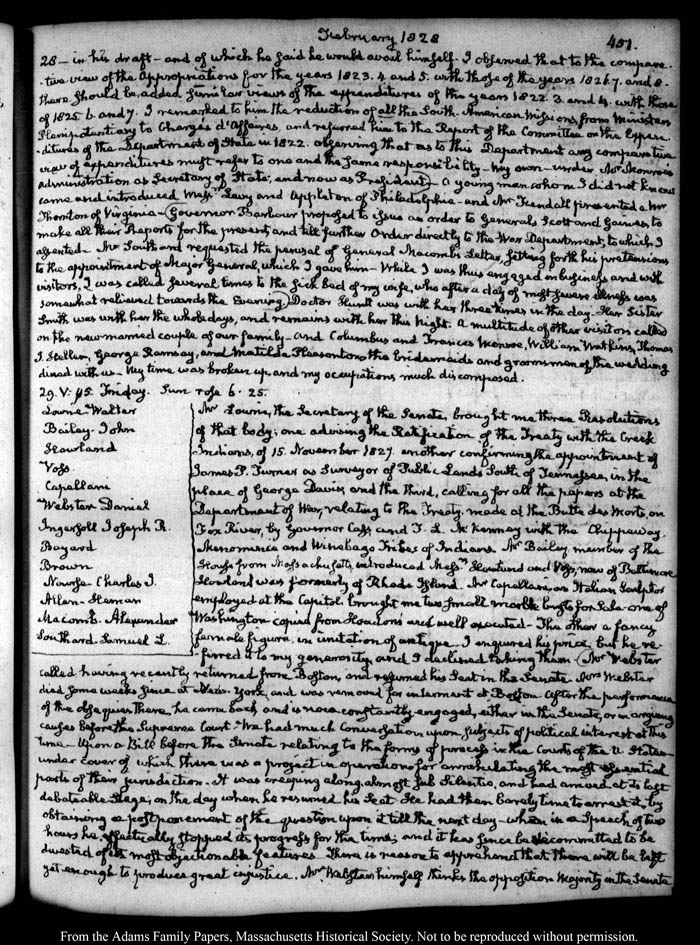 February 1828
451.
28 – in his draft – and of which he said he would avail himself. I observed that to the compara-
tive view of the Appropriations for the years 1823. 4 and 5. with those of the years 1826. 7. and 8.
there should be added similar views of the expenditures of the years 1822. 3. and 4. with those
of 1825. 6. and 7. I remarked to him the reduction of all the South-American Missions from Ministers
Plenipotentiary to Chargés d'Affaires, and referred him to the Report of the Committee on the Expen-
ditures of the Department of State in 1822. observing that as to this Department any comparative
view of expenditures must refer to one and the same responsibility – my own – under Mr Monroe's
administration as Secretary of State, and now as President – A young man whom I did not know
came and introduced Messrs Levy and Appleton of Philadelphia – and Mr Kendall presented a Mr
Thornton of Virginia – Governor Barbour proposed to issue an order to Generals Scott and Gaines, to
make all their Reports for the present, and till further Order directly to the War Department, to which I
assented. Mr Southard requested the perusal of General Macomb's Letter, setting forth his pretensions
to the appointment of Major General, which I gave him – While I was thus engaged in business and with
visitors, I was called several times to the sick bed of my wife, who after a day of most severe illness was
somewhat relieved towards the Evening. Doctor Huntt was with her three times in the day – Her Sister
Smith was with her the whole day, and remains with her this Night. A multitude of other visitors called
on the new married couple of our family – and Columbus and Frances Monroe, William Watkins, Thomas
J. Hellen, George Ramsay, and Matilda Pleasonton, the bridesmaids and groomsmen of the wedding
dined with us – My time was broken up, and my occupations much discomposed.
29. V: 45. Friday. Sun rose 6. 25.
Lowrie Walter
Bailey John
Howland
Voss
Capellani
Webster Daniel
Ingersoll Joseph R.
Bayard
Brown
Nourse Charles J.
Allen Heman
Macomb. Alexander
Southard Samuel L.
Mr Lowrie, the Secretary of the Senate brought me three Resolutions
of that body; one advising the Ratification of the Treaty with the Creek
Indians, of 15. November 1827. another confirming the appointment of
James P. Turner as Surveyor of Public Lands South of Tennessee, in the
place of George Davis; and the third, calling for all the papers at the
Department of War, relating to the Treaty made at the Butte des Morts, on
Fox River, by Governor Cass and T. L. McKenney with the Chippeway,
Menomenie and Winebago Tribes of Indians. Mr Bailey, member of the
House from Massachusetts, introduced Messrs Howland and Voss, now of Baltimore
Howland was formerly of Rhode Island. Mr Capellani, an Italian Sculptor
employed at the Capitol brought me two small marble busts for sale – one of
Washington copied from Houdons and well executed – The other a fancy
female figure, in imitation of antique. I enquired his price, but he re-
ferred it to my generosity, and I declined taking them – Mr Webster
called having recently returned from Boston, and resumed his Seat in the Senate. Mrs Webster
died some weeks since at New-York, and was removed for interment at Boston. After the performance
of the obsequies there, he came back and is now constantly engaged, either in the Senate, or in arguing
causes before the Supreme Court – We had much conversation upon subjects of political interest at this
time – Upon a Bill before the Senate relating to the forms of process in the Courts of the U. States –
under cover of which there was a project in operation for annihilating the most essential
parts of their jurisdiction. It was creeping along almost sub silentio, and had arrived at its last
debateable stage, on the day when he resumed his Seat. He had then barely time to arrest it, by
obtaining a postponement of the question upon it till the next day – when in a Speech of two
hours he effectually stopped its progress for the time; and it has since been recommitted to be
divested of its most objectionable features. There is reason to apprehend that there will be left
yet enough to produce great injustice. Mr Webster himself thinks the opposition Majority in the Senate
From the Adams Family Papers, Massachusetts Historical Society. Not to be reproduced without permission.